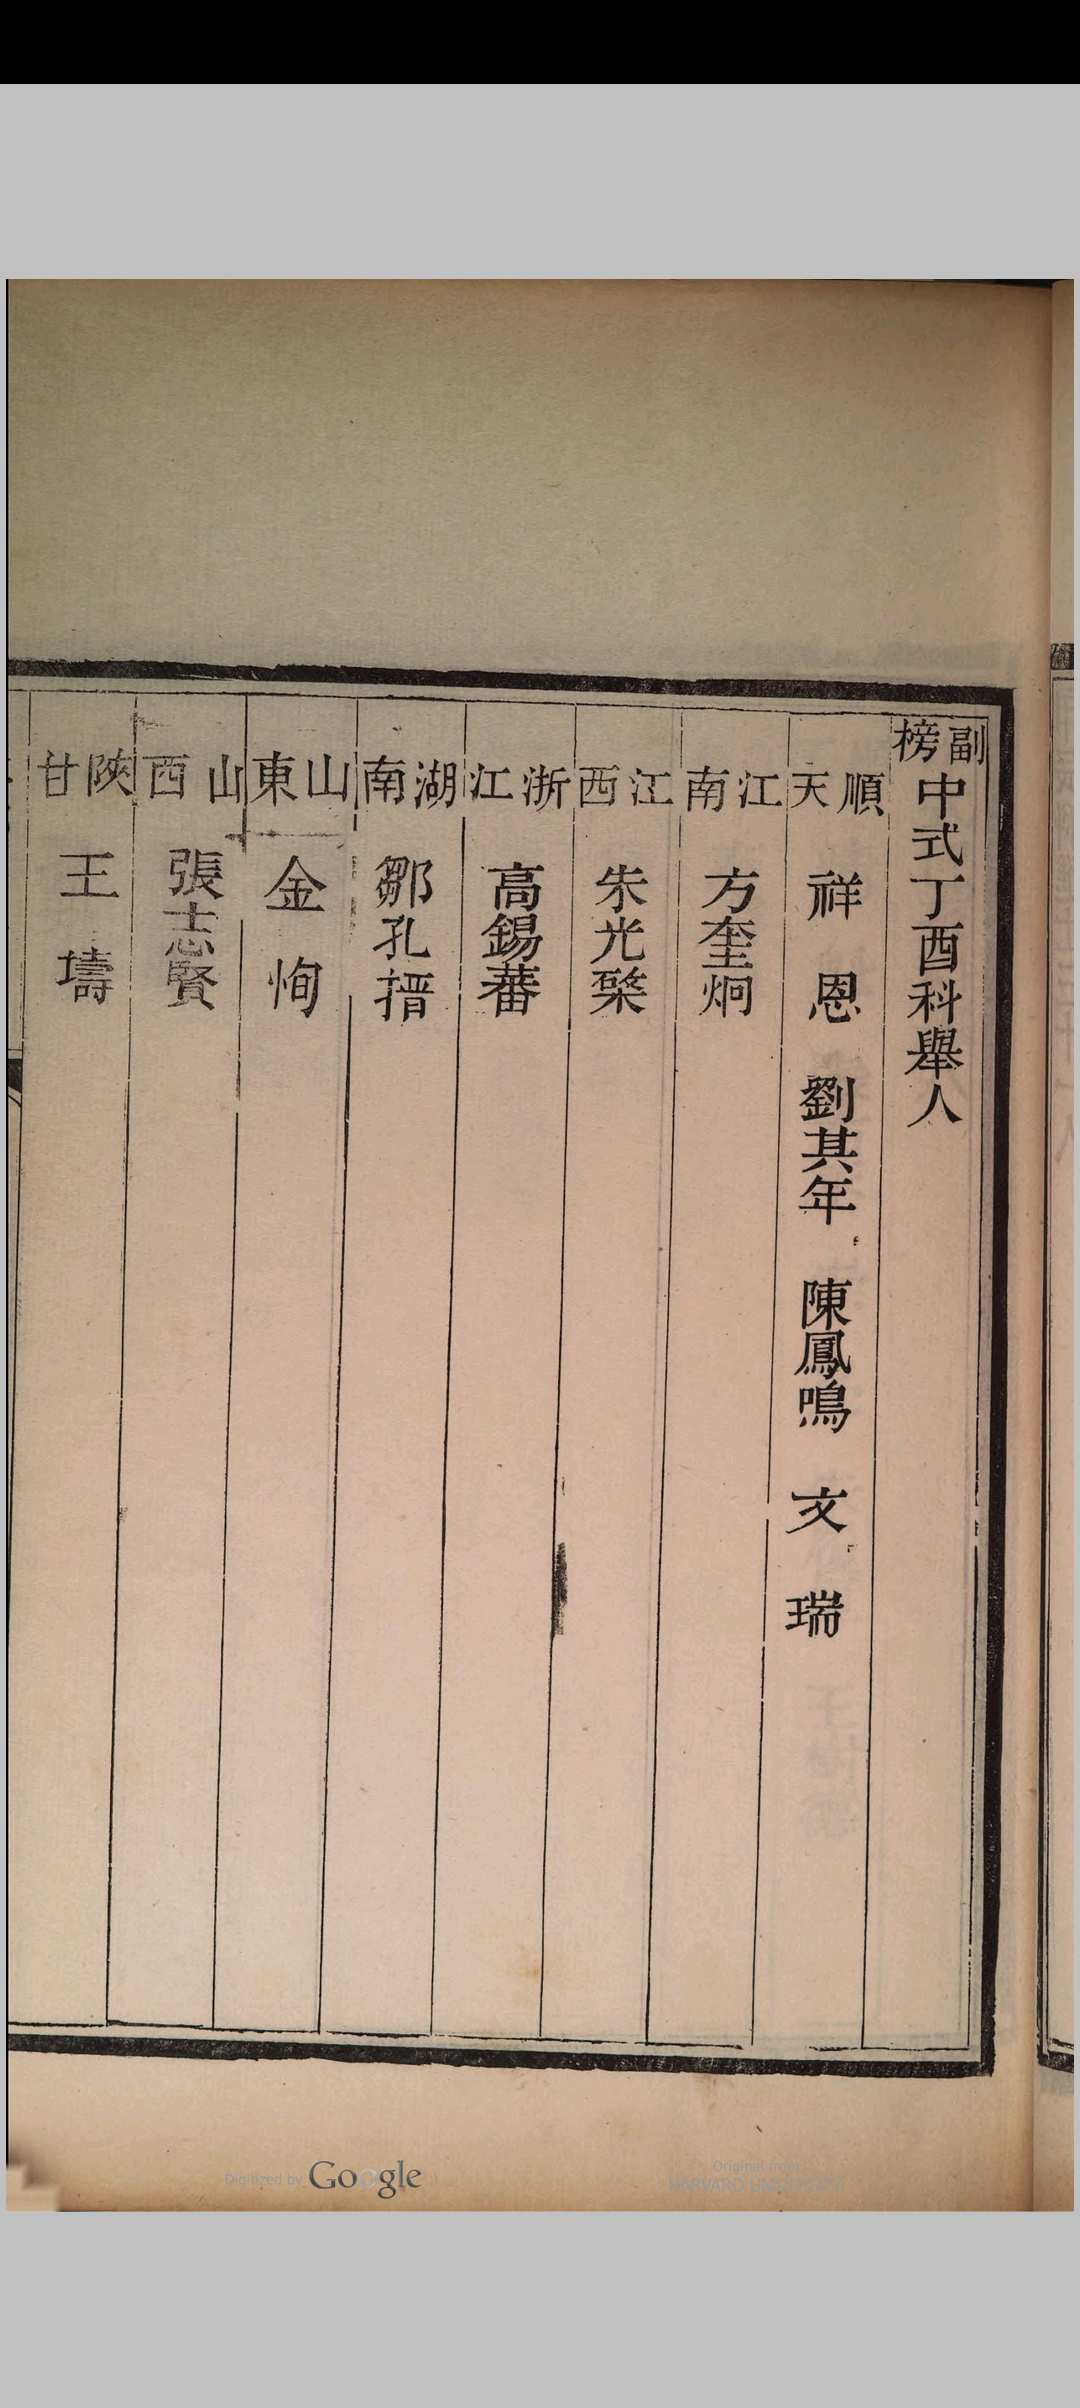 副榜中式丁酉科舉人
順天 祥恩 劉其年 陳鳳鳴 文瑞
江南 方奎炯
江西 朱光棨
浙江 高錫蕃
湖南 鄒孔搢
山東 金恂
山西 張志賢
陝甘 王壽
Digitized by Google
Original from
HARVARD UNIVERSITY